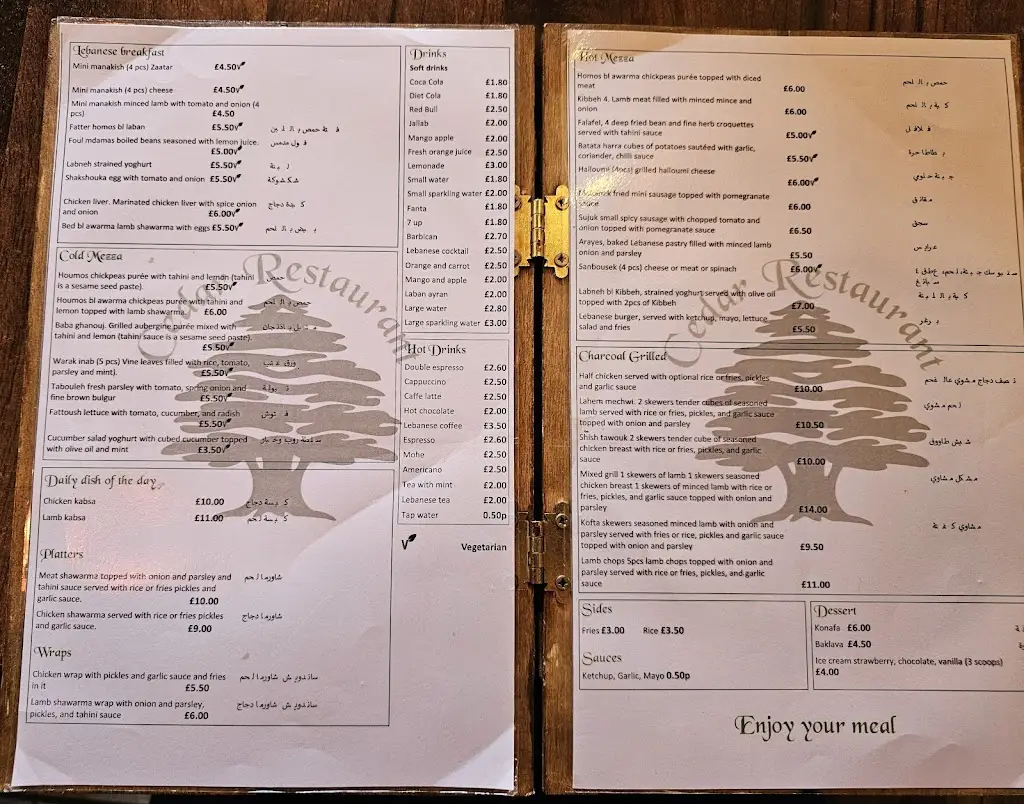 Lebanese breakfast
Mini manakish (4 pcs) Zaatar £4.50V
Mini manakish (4 pcs) cheese £4.50V
Mini manakish minced lamb with tomato and onion (4
pcs) £4.50
Fatter homos bl laban £5.50V
Foul mdamas boiled beans seasoned with lemon juice. ف ول مدمس
£5.00V
Labneh strained yoghurt £5.50V
Shakshouka egg with tomato and onion £5.50V شكشوكة
Chicken liver. Marinated chicken liver with spice onion
and onion £6.00V
Bed bl awarma lamb shawarma with eggs £5.50V
Cold Mezza
Houmos chickpeas purée with tahini and lemon (tahini حمص
is a sesame seed paste). £5.50V
Houmos bl awarma chickpeas purée with tahini and
lemon topped with lamb shawarma £6.00
Baba ghanouj. Grilled aubergine purée mixed with
tahini and lemon (tahini sauce is a sesame seed paste).
£5.50V
Warak inab (5 pcs) Vine leaves filled with rice, tomato,
parsley and mint). £5.50V
Tabouleh fresh parsley with tomato, spring onion and
fine brown bulgur £5.50V
Fattoush lettuce with tomato, cucumber, and radish
£5.50V
Cucumber salad yoghurt with cubed cucumber topped
with olive oil and mint £3.50V
Daily dish of the day
Chicken kabsa £10.00
Lamb kabsa £11.00
Platters
Meat shawarma topped with onion and parsley and شاورما لحم
tahini sauce served with rice or fries pickles and
garlic sauce. £10.00
Chicken shawarma served with rice or fries pickles شاورما دجاج
and garlic sauce. £9.00
Wraps
Chicken wrap with pickles and garlic sauce and fries ساندويش شاورما لحم
in it £5.50
Lamb shawarma wrap with onion and parsley, ساندويش شاورما دجاج
pickles, and tahini sauce £6.00
Drinks
Soft drinks
Coca Cola £1.80
Diet Cola £1.80
Red Bull £2.50
Jallab £2.00
Mango apple £2.00
Fresh orange juice £2.50
Lemonade £3.00
Small water £1.80
Small sparkling water £2.00
Fanta £1.80
7 up £1.80
Barbican £2.70
Lebanese cocktail £2.50
Orange and carrot £2.50
Mango and apple £2.00
Laban ayran £2.00
Large water £2.80
Large sparkling water £3.00
Hot Drinks
Double espresso £2.60
Cappuccino £2.50
Caffe latte £2.50
Hot chocolate £2.00
Lebanese coffee £3.50
Espresso £2.60
Mohe £2.50
Americano £2.50
Tea with mint £2.00
Lebanese tea £2.00
Tap water 0.50p
V Vegetarian
Cedar Restaurant
Hot Mezza
Homos bl awarma chickpeas purée topped with diced
meat £6.00
Kibbeh 4. Lamb meat filled with minced mince and
onion £6.00
Falafel, 4 deep fried bean and fine herb croquettes
served with tahini sauce £5.00V
Batata harra cubes of potatoes sautéed with garlic,
coriander, chilli sauce £5.50V
Halloumi (4pcs) grilled halloumi cheese
£6.00V
fried mini sausage topped with pomegranate
sauce £6.00
Sujuk small spicy sausage with chopped tomato and سجق
onion topped with pomegranate sauce £6.50
Arayes, baked Lebanese pastry filled with minced lamb
onion and parsley £5.50
Sanbousek (4 pcs) cheese or meat or spinach £6.00V
Labneh bl Kibbeh, strained yoghurt served with olive oil
topped with 2pcs of Kibbeh £7.00
Lebanese burger, served with ketchup, mayo, lettuce
salad and fries £5.50
Charcoal Grilled
Half chicken served with optional rice or fries, pickles
and garlic sauce £10.00
Lahem mechwi. 2 skewers tender cubes of seasoned لحم مشوي
lamb served with rice or fries, pickles, and garlic sauce
topped with onion and parsley £10.50
Shish tawouk 2 skewers tender cube of seasoned شيش طاووق
chicken breast with rice or fries, pickles, and garlic
sauce £10.00
Mixed grill 1 skewers of lamb 1 skewers seasoned مشكل مشاوي
chicken breast 1 skewers of minced lamb with rice or
fries, pickles, and garlic sauce topped with onion and
parsley £14.00
Kofta skewers seasoned minced lamb with onion and
parsley served with rice or fries, pickles and garlic sauce
topped with onion and parsley £9.50
Lamb chops 5pcs lamb chops topped with onion and
parsley served with rice or fries, pickles, and garlic
sauce £11.00
Sides
Fries £3.00 Rice £3.50
Sauces
Ketchup, Garlic, Mayo 0.50p
Dessert
Konafa £6.00
Baklava £4.50
Ice cream strawberry, chocolate, vanilla (3 scoops)
£4.00
Enjoy your meal
Cedar Restaurant